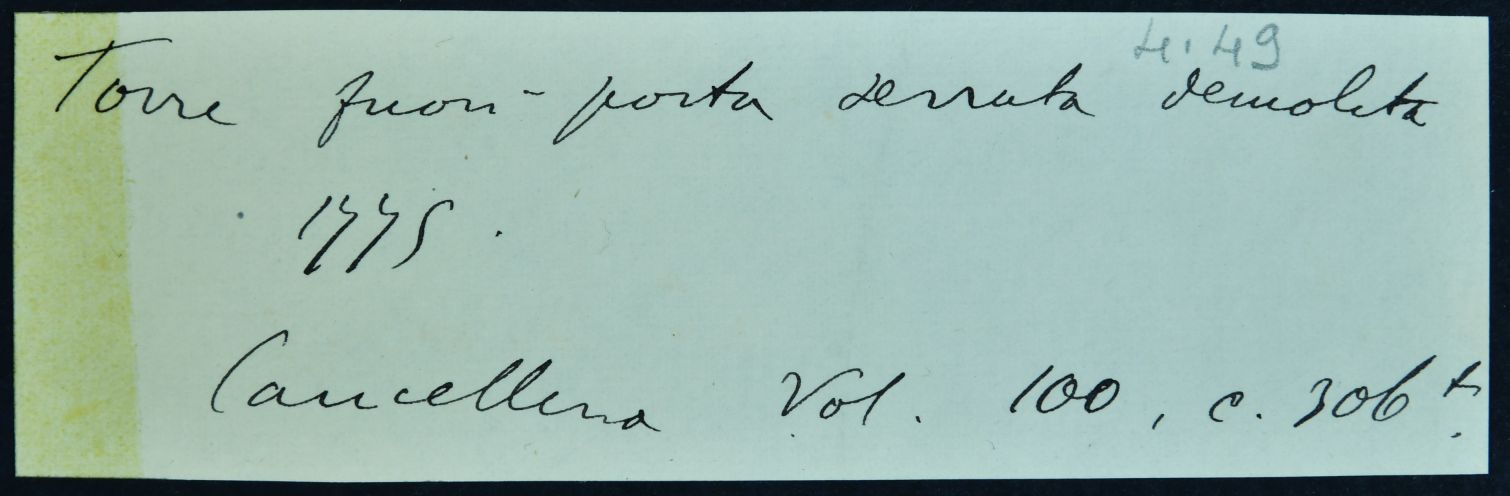 4.49
Torre fuori porta serrata demolita
1775.
Cancelleria Vol. 100, c. 306 t.